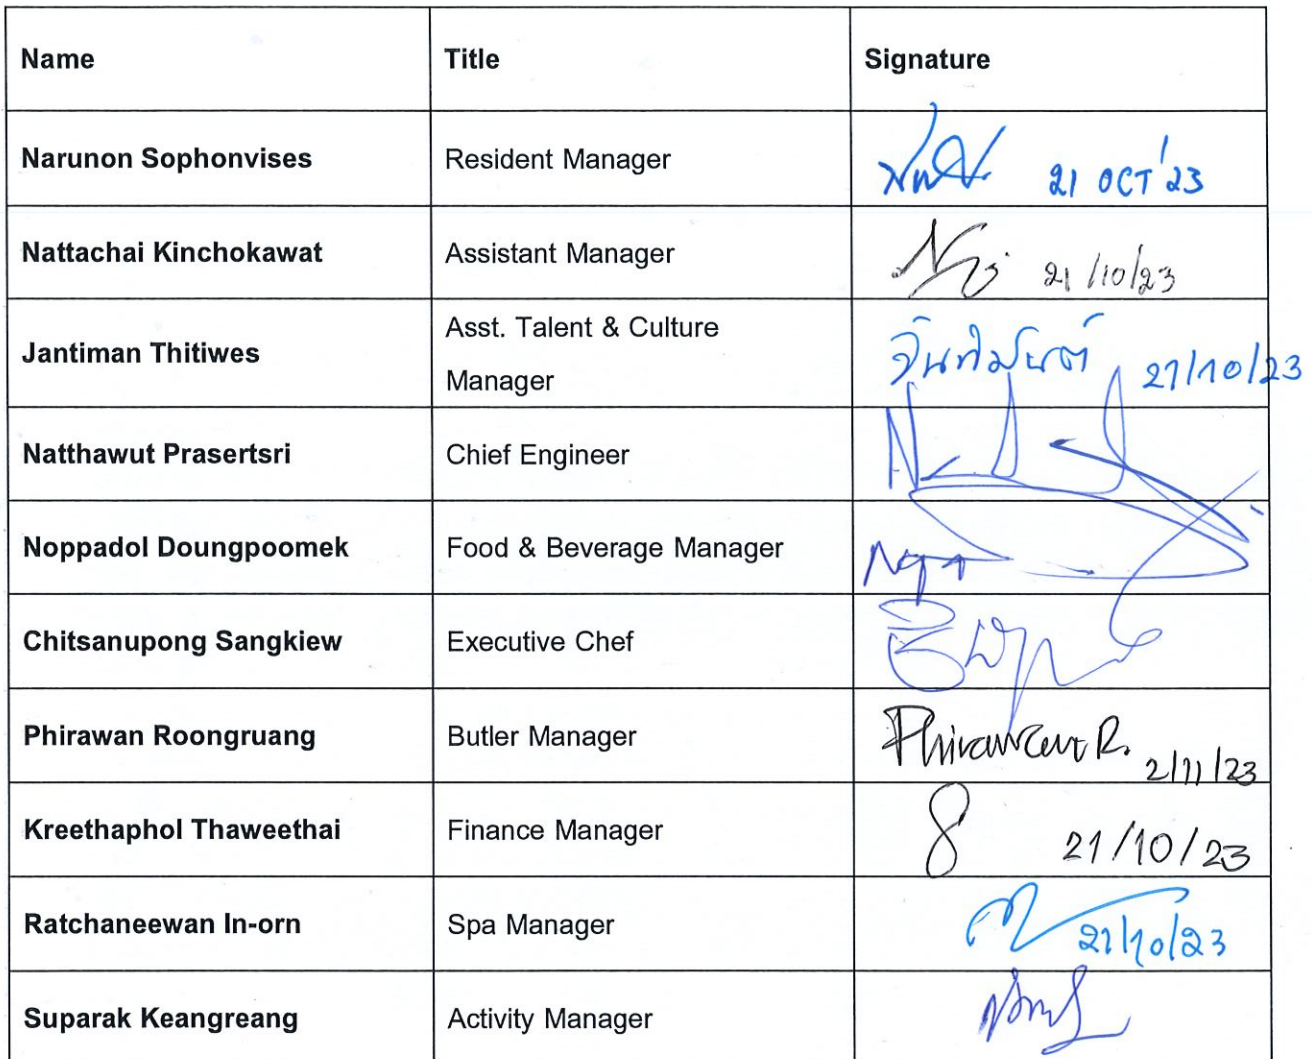 Name Title Signature
Narunon Sophonvises Resident Manager 21 OCT'23
Nattachai Kinchokawat Assistant Manager 21/10/23
Jantiman Thitiwes Asst. Talent & Culture
Manager จันทิมันต์ 21/10/23
Natthawut Prasertsri Chief Engineer
Noppadol Doungpoomek Food & Beverage Manager
Chitsanupong Sangkiew Executive Chef
Phirawan Roongruang Butler Manager Phirawan R. 2/11/23
Kreethaphol Thaweethai Finance Manager 21/10/23
Ratchaneewan In-orn Spa Manager 21/10/23
Suparak Keangreang Activity Manager